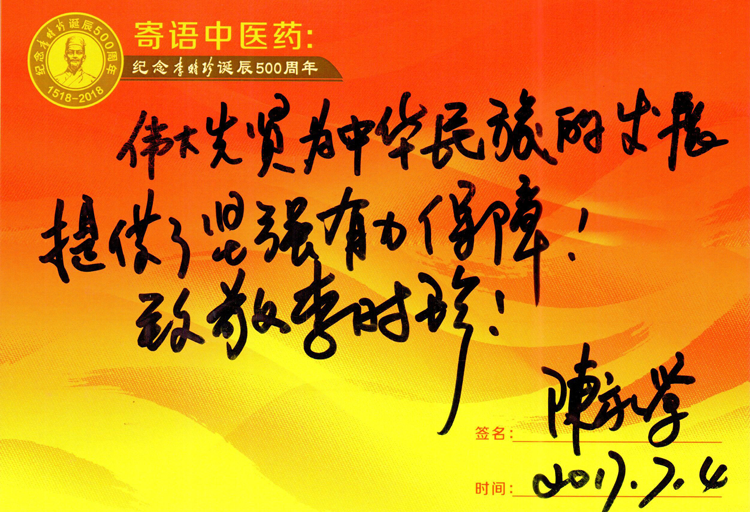 纪念李时珍诞辰500周年
1518-2018
寄语中医药:
纪念李时珍诞辰500周年
伟大先贤为中华民族的发展
提供了坚强有力保障!
致敬李时珍!
签名: 陳永学
时间: 2017.7.4